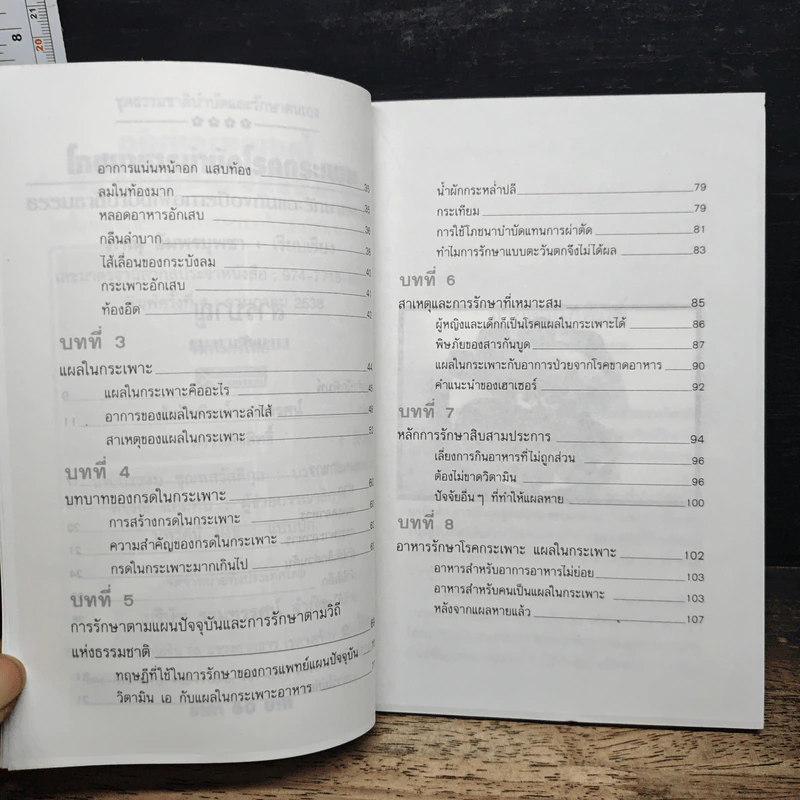 8
21
20
อาการแน่นหน้าอก แสบท้อง
ลมในท้องมาก 35
หลอดอาหารอักเสบ 36
กลืนลำบาก 38
ไส้เลื่อนของกระบังลม 40
กระเพาะอักเสบ 41
ท้องอืด 42
บทที่ 3
แผลในกระเพาะ 44
แผลในกระเพาะคืออะไร 45
อาการของแผลในกระเพาะลำไส้
สาเหตุของแผลในกระเพาะ
บทที่ 4
บทบาทของกรดในกระเพาะ
การสร้างกรดในกระเพาะ
ความสำคัญของกรดในกระเพาะ
กรดในกระเพาะมากเกินไป
บทที่ 5
การรักษาตามแผนปัจจุบันและการรักษาตามวิถี
แห่งธรรมชาติ
ทฤษฎีที่ใช้ในการรักษาของการแพทย์แผนปัจจุบัน
วิตามิน เอ กับแผลในกระเพาะอาหาร
น้ำผักกระหล่ำปลี 79
กระเทียม 79
การใช้โภชนาบำบัดแทนการผ่าตัด 81
ทำไมการรักษาแบบตะวันตกจึงไม่ได้ผล 83
บทที่ 6
สาเหตุและการรักษาที่เหมาะสม 85
ผู้หญิงและเด็กก็เป็นโรคแผลในกระเพาะได้ 86
พิษภัยของสารกันบูด 87
แผลในกระเพาะกับอาการป่วยจากโรคขาดอาหาร 90
คำแนะนำของเฮาเซอร์ 92
บทที่ 7
หลักการรักษาสิบสามประการ 94
เลี่ยงการกินอาหารที่ไม่ถูกส่วน 96
ต้องไม่ขาดวิตามิน 96
ปัจจัยอื่นๆ ที่ทำให้แผลหาย 100
บทที่ 8
อาหารรักษาโรคกระเพาะ แผลในกระเพาะ 102
อาหารสำหรับอาการอาหารไม่ย่อย 103
อาหารสำหรับคนเป็นแผลในกระเพาะ 103
หลังจากแผลหายแล้ว 107